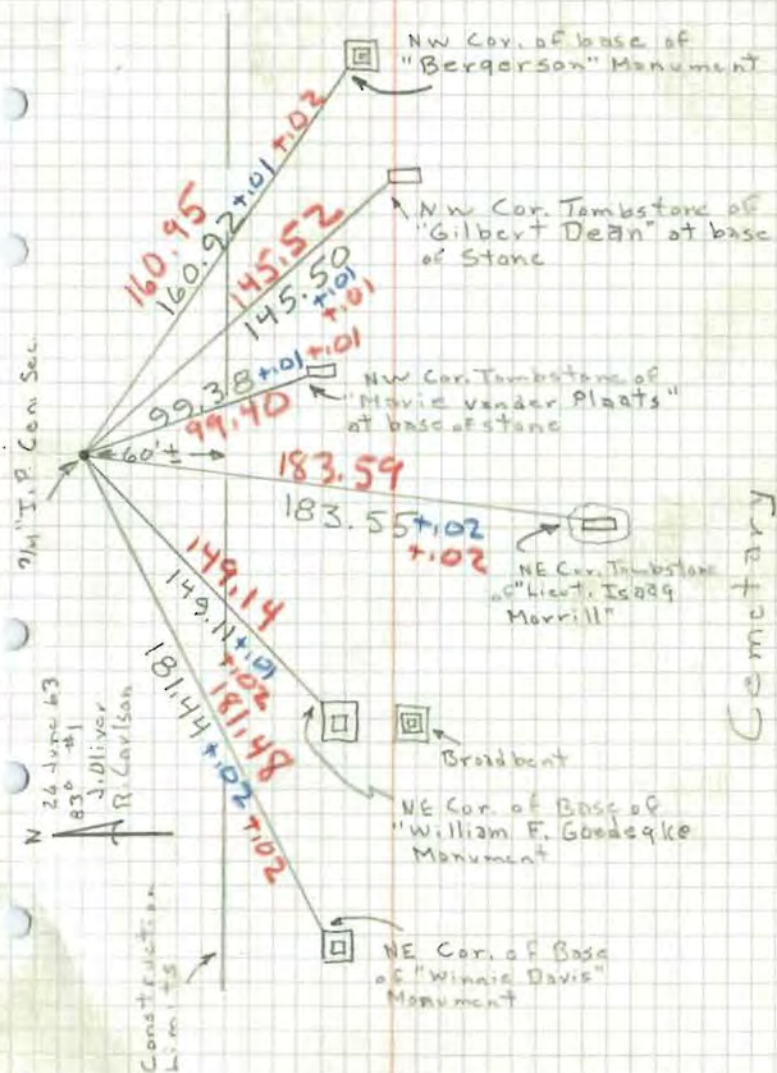 NW Cor. of base of
"Bergerson" Monument
160.95
160.92 +.01 +.02
NW Cor. Tombstone of
"Gilbert Dean" at base
of Stone
145.52
145.50
+.01
+.01
99.38 +.01 +.01
99.40
NW Cor. Tombstone of
"Marie vander Plaats"
at base of stone
3/4" I.P. Cen. Sec.
60' ±
183.59
183.55 +.02
+.02
NE Cor. Tombstone
of "Lieut. Isaac
Morrill"
Cemetary
149.14
149.11 +.01
+.02
181.44 +.02 +.02
181.48
Broadbent
NE Cor. of Base of
"William F. Goedeqke
Monument
26 June 63
83° #1
J. Oliver
R. Carlson
N
NE Cor. of Base
of "Winnie Davis"
Monument
Construction
Limits